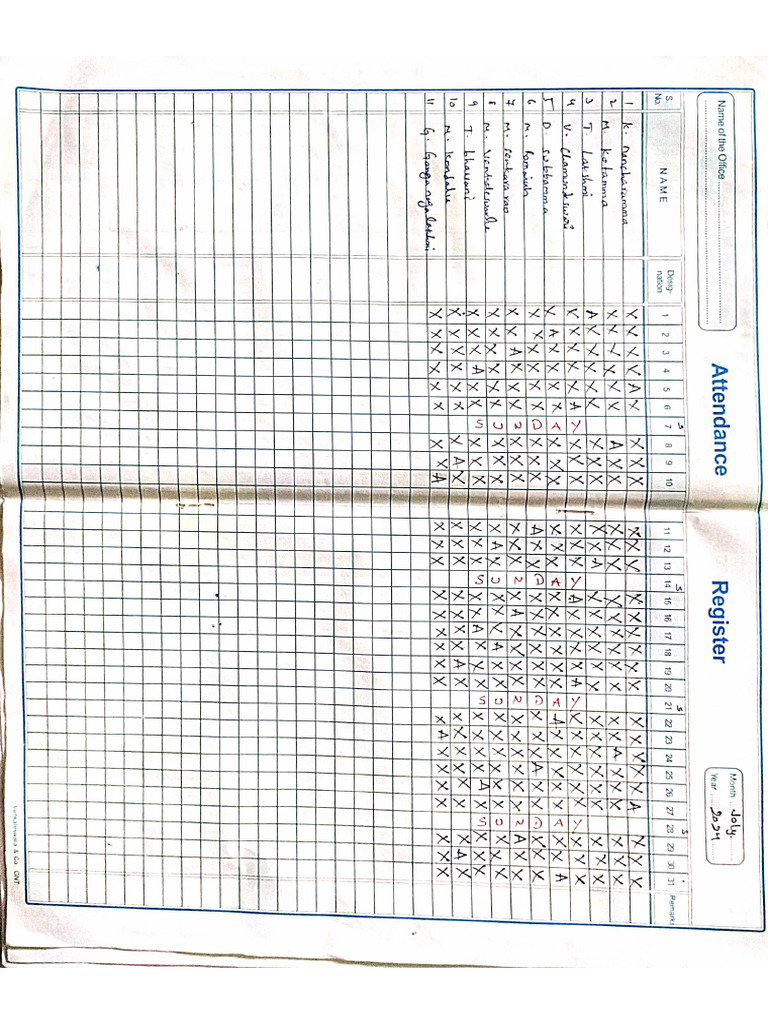 Name of the Office
Attendance Register
Month July
Year 2024
S S S S
S. No. NAME Desig- nation 1 2 3 4 5 6 7 8 9 10 11 12 13 14 15 16 17 18 19 20 21 22 23 24 25 26 27 28 29 30 31 Remarks
1 K. Nancharamma X X X X A X X X X X X X X X X X X X X X X X X A X X X
2 M. Kotamma X X X X X X A X X X X X X X X X X X X X A X X X X X X
3 T. Lakshmi A X X X X X X X X X X A X X X X X X X X X X X X X X X
4 V. Chamundeswari X X X X X A Y X X X X X X Y A X X X X A Y X X X X X X Y X X X
5 D. Subbamma X A X X X X A X X X X X X A X X X X X X A A X X X X X A X X A
6 M. Romaiah X X X X X D X X X A X X D X X X X X X D X X X A X X D X X X
7 M. Senkararao X X A X X X N X X X X X X N X A X X X X N X X X X X X N A X X
8 M. Venkateswarlu X X X X X X U X X X X A X U X X X A X X U X X X X X X U X X X
9 T. bhavani X X X A X X S X X X X X X S X X A X X X S X X X X A X S X X X
10 M. Kondalu X X X X X X X A X X X X X X X X A X X X X X X X X A X
11 G. Ganga nagalakshmi X X X X X X X X A X X X X X X X X X X A X X X X X X X